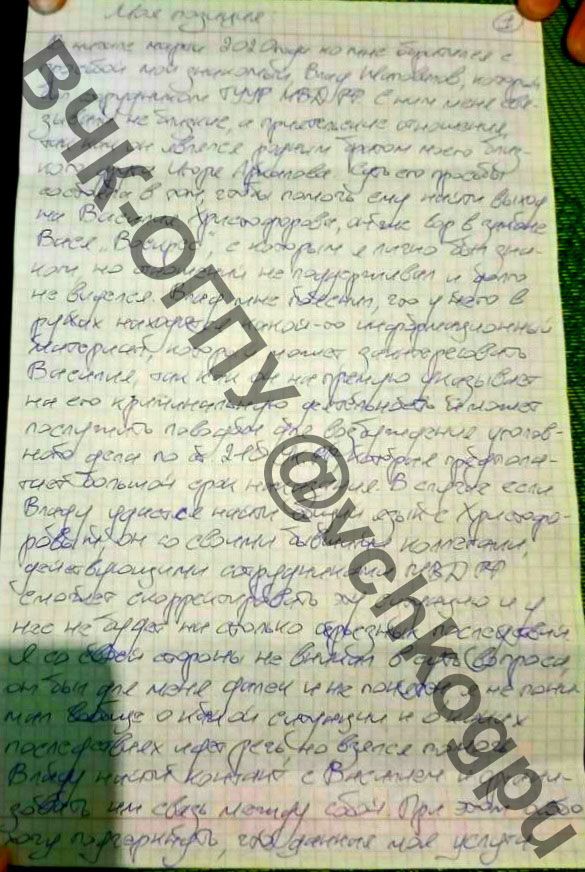 Моя позиция:
1
В начале марта 2020 года ко мне обратился с
просьбой мой знакомый Влад
сотрудником ГУУР МВД РФ. С ним меня свя-
зывали не близкие, а приятельские отношения,
так как он являлся родным братом моего близ-
кого друга Игоря Суть его просьбы
состояла в том, чтобы помочь ему найти выход
на Василия Христофорова, он же вор в законе
Вася „Воскрес", с которым я лично был зна-
ком, но отношений не поддерживал и долго
не виделся. Влад мне пояснил, что у него в
руках находится какой-то информационный
материал, который может заинтересовать
Василия, так как он на прямую указывает
на его криминальную деятельность и может
послужить поводом для возбуждения уголов-
ного дела по ст. 210 УК РФ, которая предпола-
гает большой срок наказания. В случае если
Владу удастся найти общий язык с Христофо-
ровым, он со своими бывшими коллегами,
действующими сотрудниками МВД РФ
сможет скорректировать эту ситуацию и у
нас не будет ни столько серьезных последствий.
Я со своей стороны не вникал в суть вопроса,
он был для меня далек и не понятен, я не пони
мал вообще о какой ситуации и о каких
последствиях идет речь, но взялся помочь
Владу найти контакт с Василием и органи-
зовать им связь между собой. При этом особо
хочу подчеркнуть, что данные мои услуги
ВЧК-ОГПУ @vchkogpu